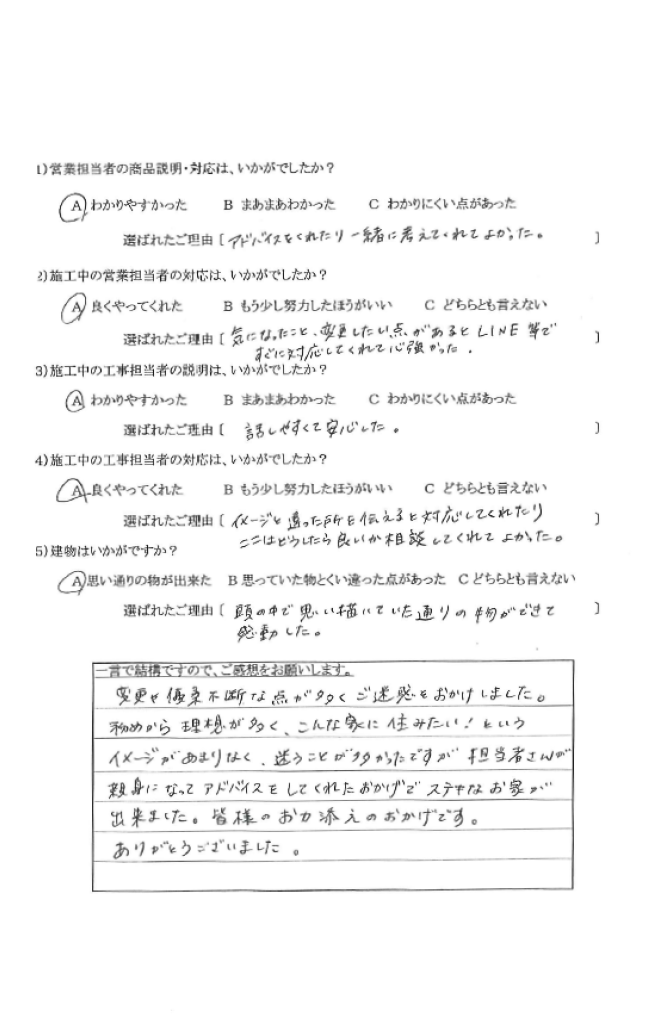 1)営業担当者の商品説明・対応は、いかがでしたか？
A わかりやすかった B まあまあわかった C わかりにくい点があった
選ばれたご理由〔アドバイスをくれたり一緒に考えてくれてよかった。〕
2)施工中の営業担当者の対応は、いかがでしたか？
A 良くやってくれた B もう少し努力したほうがいい C どちらとも言えない
選ばれたご理由〔気になったこと、変更したい点があるとLINE等で〕
すぐに対応してくれて心強かった.
3)施工中の工事担当者の説明は、いかがでしたか？
A わかりやすかった B まあまあわかった C わかりにくい点があった
選ばれたご理由〔話しやすくて安心した。〕
4)施工中の工事担当者の対応は、いかがでしたか？
A 良くやってくれた B もう少し努力したほうがいい C どちらとも言えない
選ばれたご理由〔イメージと違った所を伝えると対応してくれたり〕
ここはどうしたら良いか相談してくれてよかった。
5)建物はいかがですか？
A 思い通りの物が出来た B 思っていた物とくい違った点があった C どちらとも言えない
選ばれたご理由〔頭の中で思い描いていた通りの物ができて〕
感動した。
一言で結構ですので、ご感想をお願いします。
変更や優柔不断な点が多くご迷惑をおかけしました。
初めから理想が多く、こんな家に住みたい！という
イメージがあまりなく、迷うことが多かったですが担当者さんが
親身になってアドバイスをしてくれたおかげでステキなお家が
出来ました。皆様のお力添えのおかげです。
ありがとうございました。